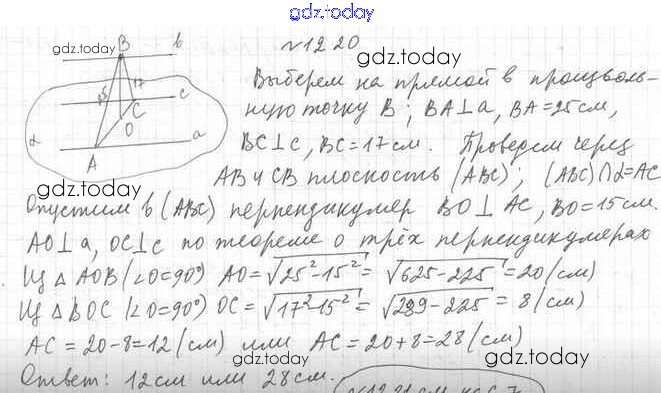 gdz.today
N 12 20
gdz.today B b gdz.today
Выберем на прямой в произволь-
ную точку B; BA⊥a, BA=25см,
17 c C O
BC⊥c, BC=17см. Проведем через
α A a
AB и CB плоскость (ABC); (ABC)∩α=AC
gdz.today gdz.today
Опустим в (ABC) перпендикуляр BO⊥AC, BO=15см.
AO⊥a, OC⊥c по теореме о трёх перпендикулярах
Из △AOB (∠O=90°) AO=√25²-15² = √625-225 = 20 (см)
Из △BOC (∠O=90°) OC=√17²-15² = √289-225 = 8 (см)
AC = 20-8=12 (см) или AC = 20+8=28 (см)
gdz.today gdz.today
Ответ: 12см или 28см.